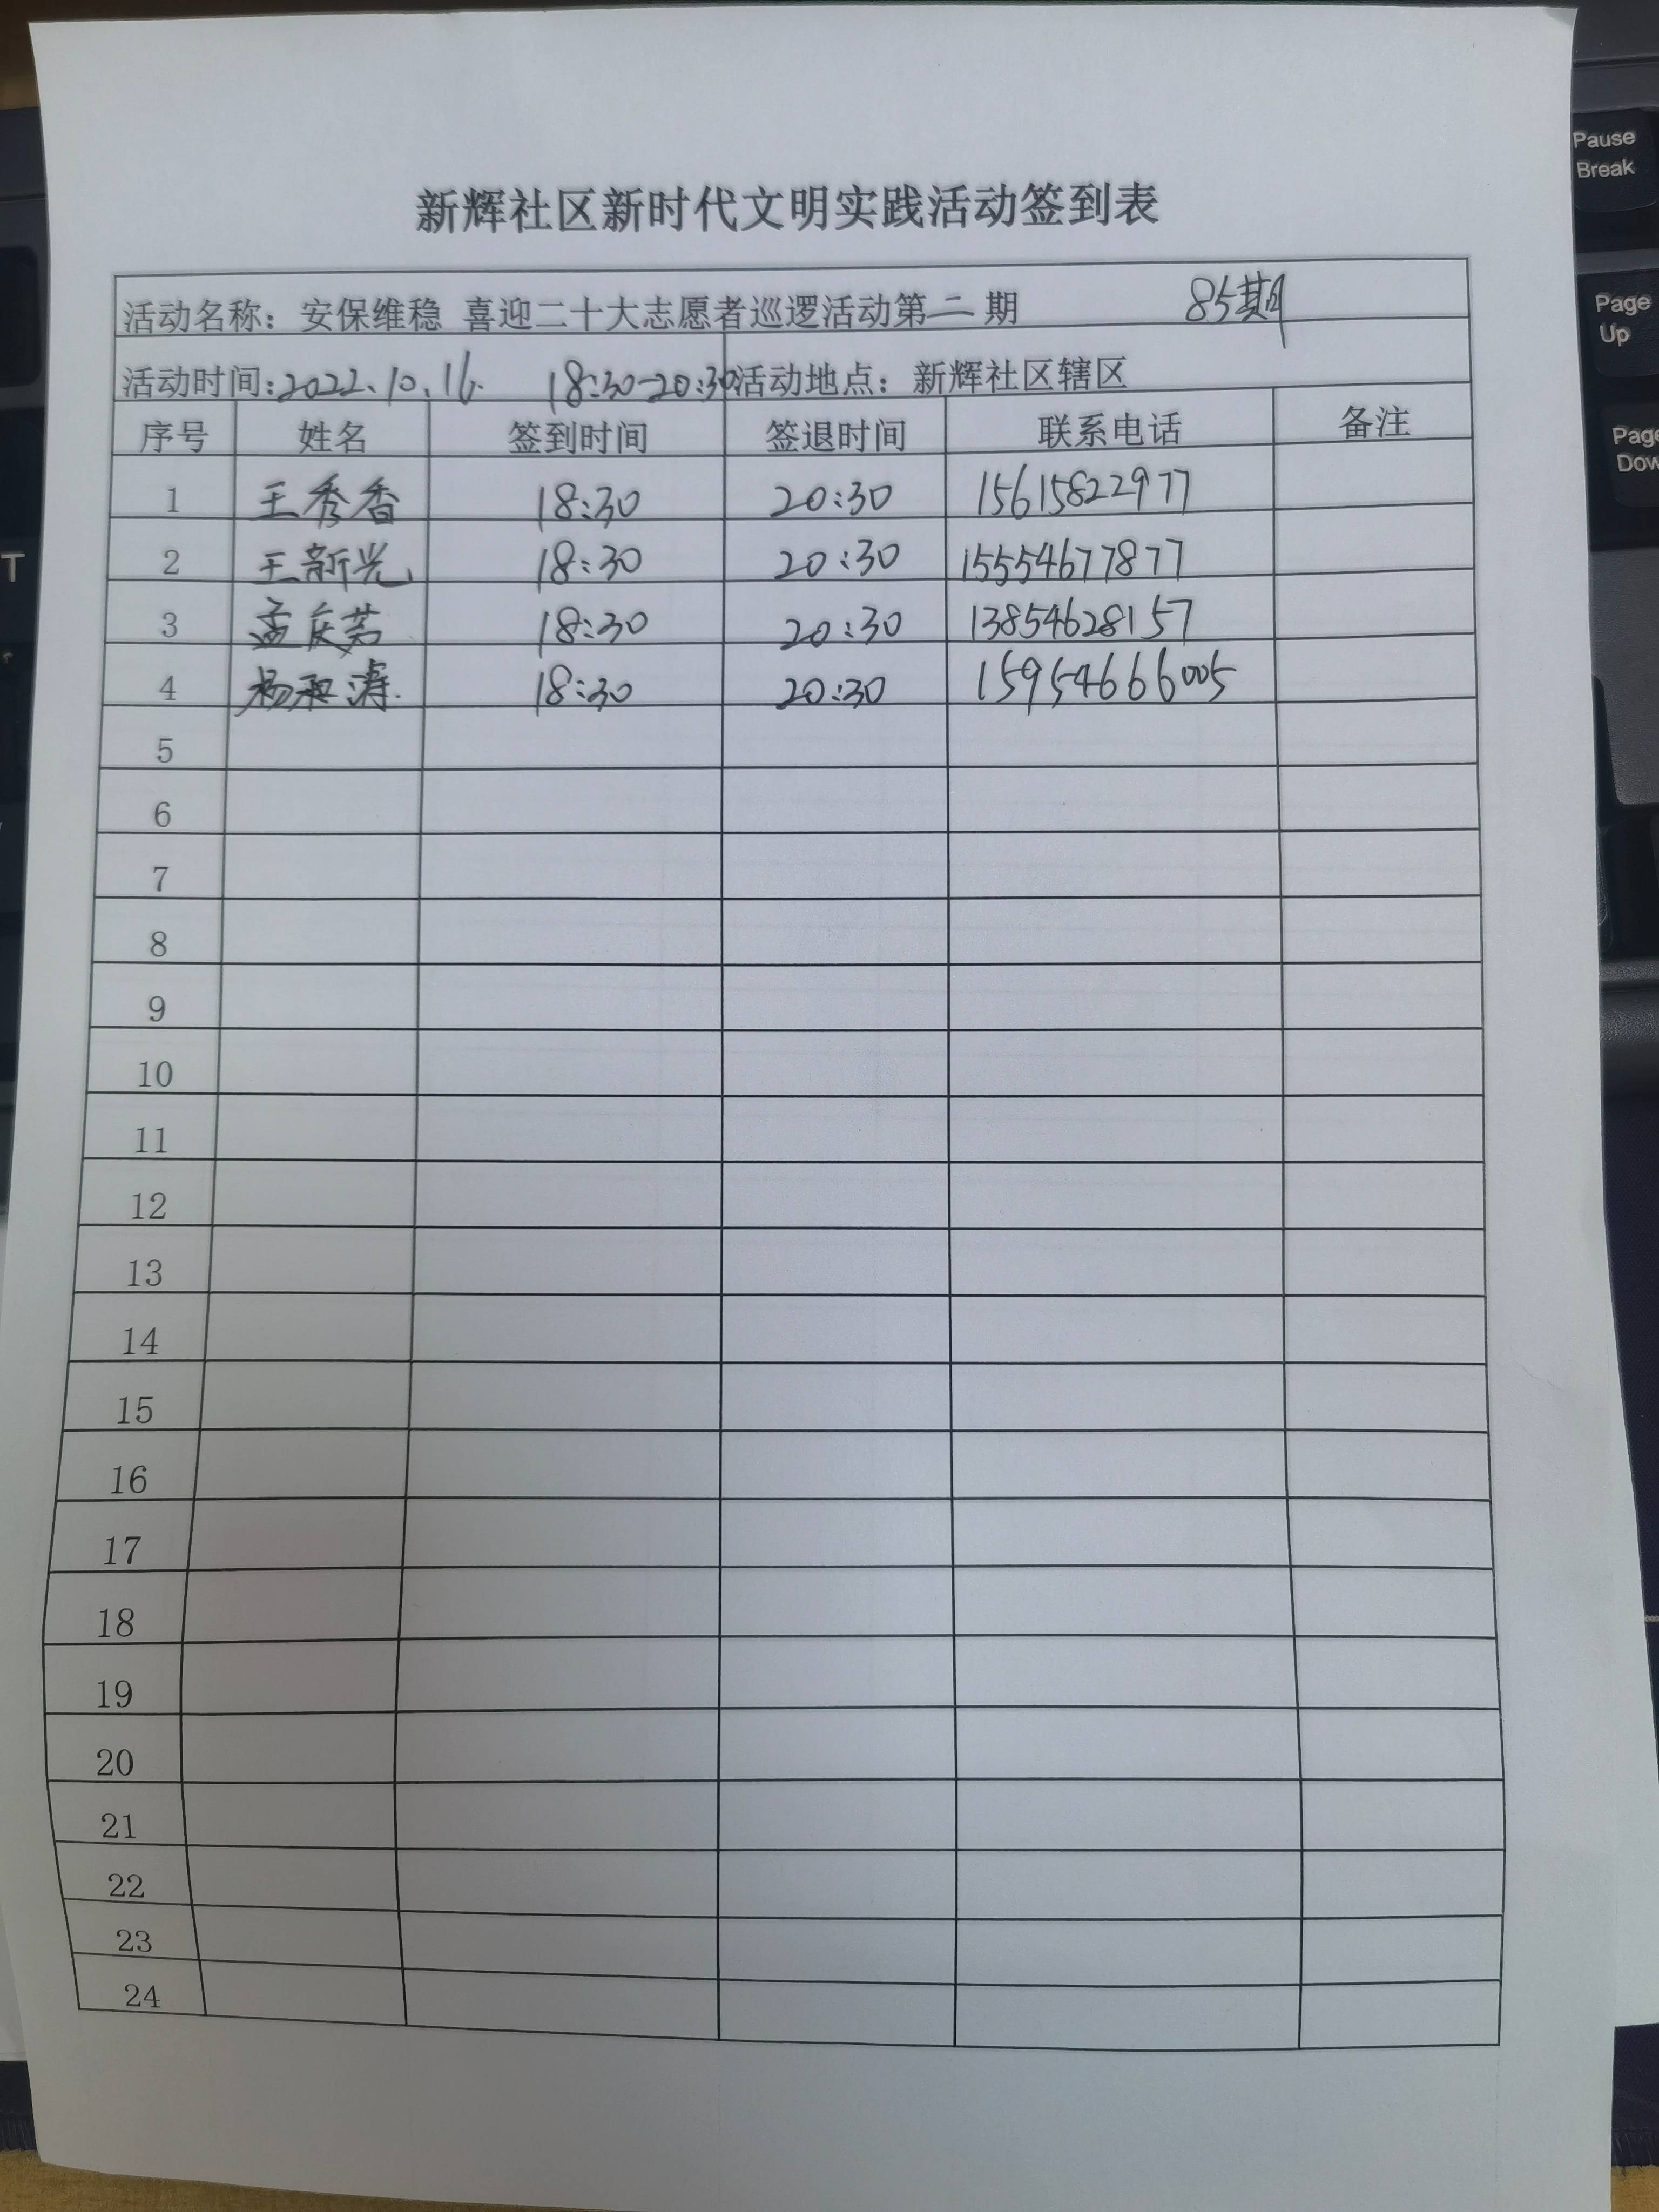 新辉社区新时代文明实践活动签到表
活动名称：安保维稳 喜迎二十大志愿者巡逻活动第二期 85期
活动时间：2022.10.16. 18:30-20:30 活动地点：新辉社区辖区
序号 姓名 签到时间 签退时间 联系电话 备注
1 王秀香 18:30 20:30 15615822977
2 王新光 18:30 20:30 15554677877
3 孟庆 18:30 20:30 13854628157
4 杨 涛 18:30 20:30 15954666005
5
6
7
8
9
10
11
12
13
14
15
16
17
18
19
20
21
22
23
24
Pause
Break
Page
Up
Page
Dow
T